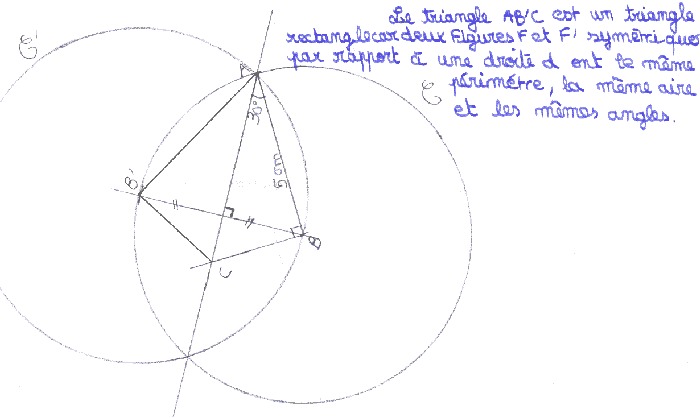 Le triangle AB'C est un triangle
rectangle car deux Figures F et F' symétriques
par rapport à une droite d ont le même
périmétre, la même aire
et les mêmes angles.
C'
A
C
30°
5 cm
B'
B
C